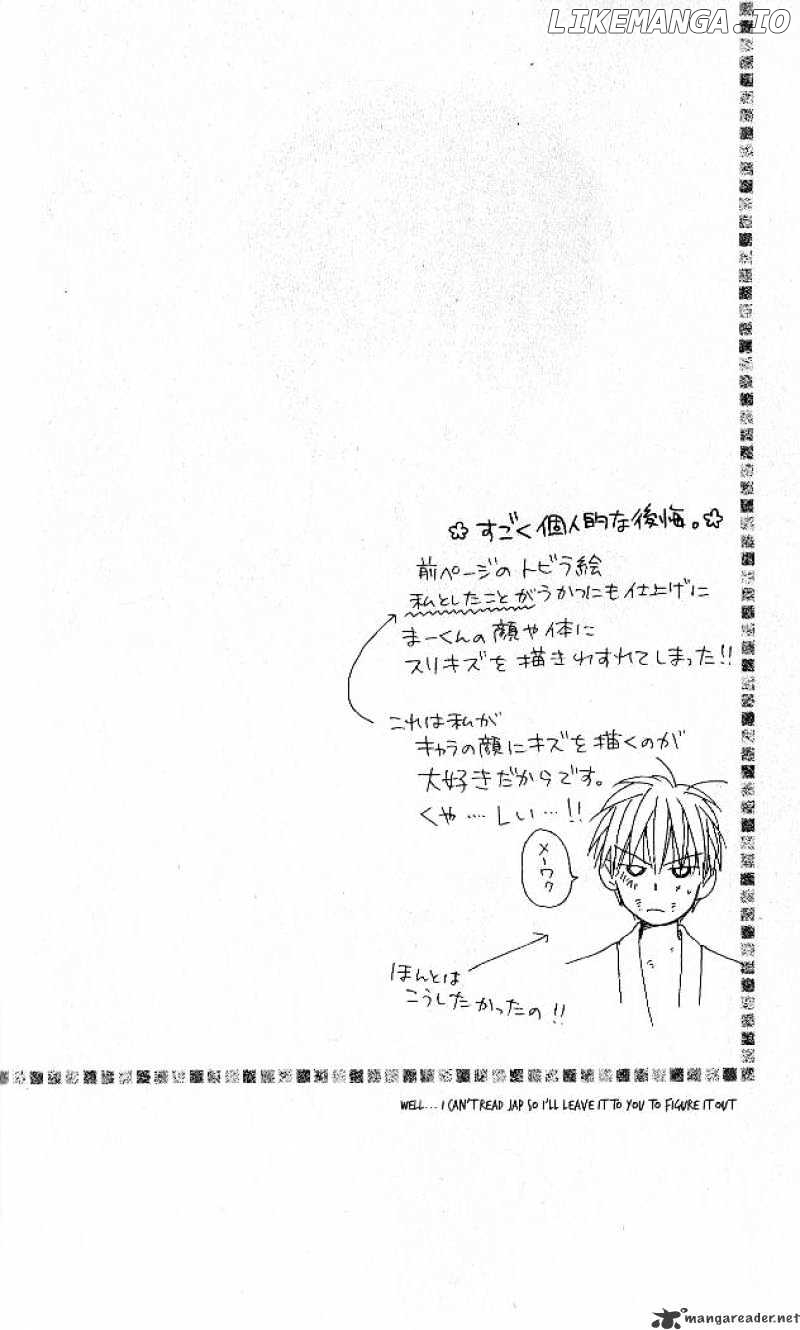 LIKEMANGA.IO
✿すごく個人的な後悔。✿
前ページのトビラ絵
私としたことがうかつにも仕上げに
まーくんの顔や体に
スリキズを描きわすれてしまった!!
これは私が
キャラの顔にキズを描くのが
大好きだからです。
くや……しい…!!
メーワク
ほんとは
こうしたかったの!!
WELL... I CAN'T READ JAP SO I'LL LEAVE IT TO YOU TO FIGURE IT OUT
mangareader.net